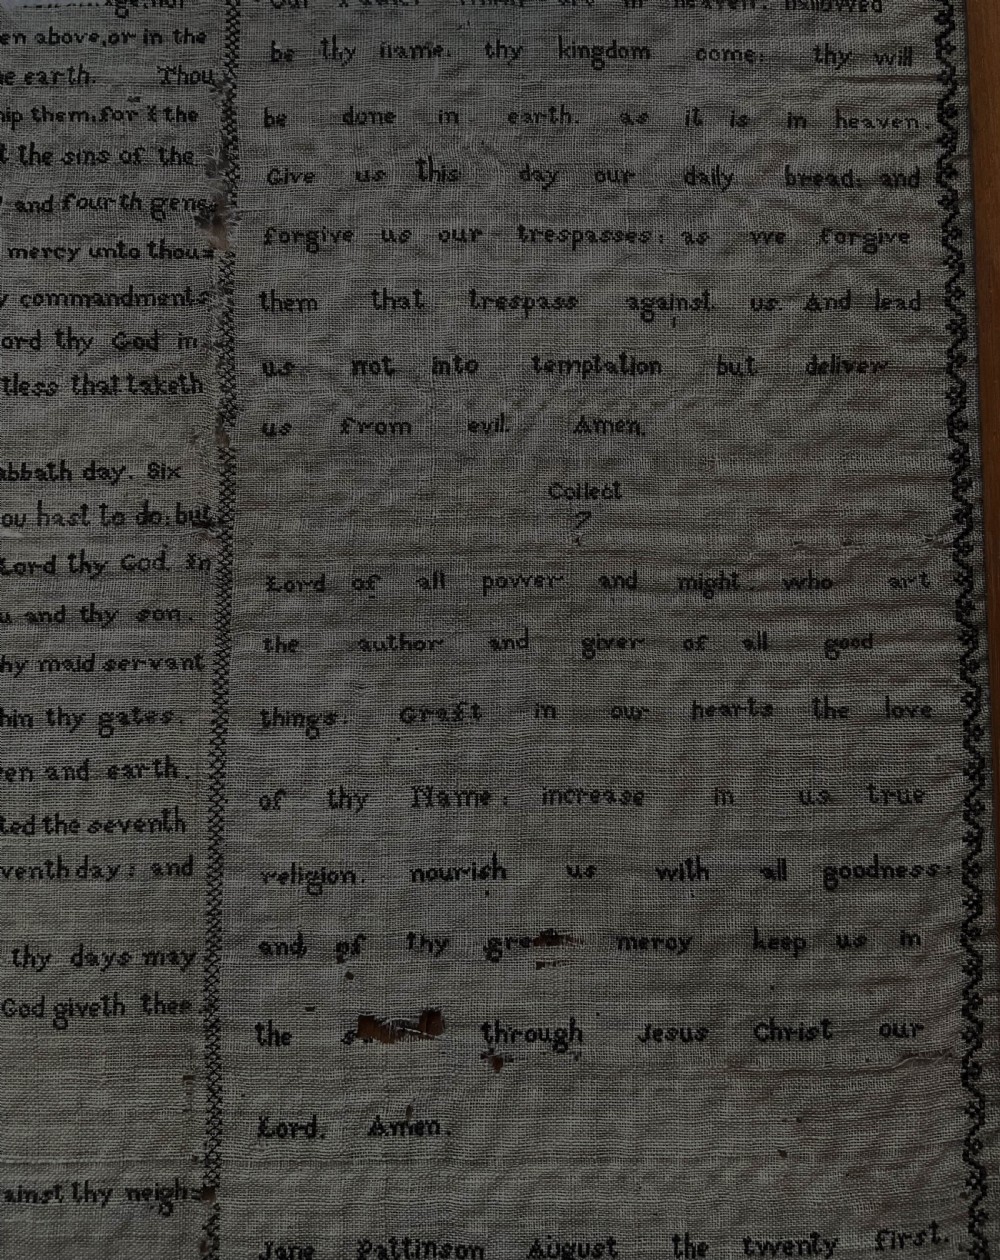 en above, or in the
e earth. Thou
hip them, for I the
t the sins of the
and fourth gene=
mercy unto thou=
y commandments
ord thy God in
tless that taketh
abbath day. Six
ou hast to do: but
Lord thy God. In
u and thy son.
hy maid servant
hin thy gates.
en and earth.
ted the seventh
venth day: and
thy days may
God giveth thee.
ainst thy neigh=
Our Father in heaven. hallowed
be thy name. thy kingdom come: thy will
be done in earth. as it is in heaven.
Give us this day our daily bread. and
forgive us our trespasses: as we forgive
them that trespass against us. And lead
us not into temptation but deliver
us from evil. Amen.
Collect
7
Lord of all power and might who art
the author and giver of all good
things. Graft in our hearts the love
of thy Name. increase in us true
religion. nourish us with all goodness:
and of thy mercy keep us in
the through Jesus Christ our
Lord. Amen.
Jane Pattinson August the twenty first.